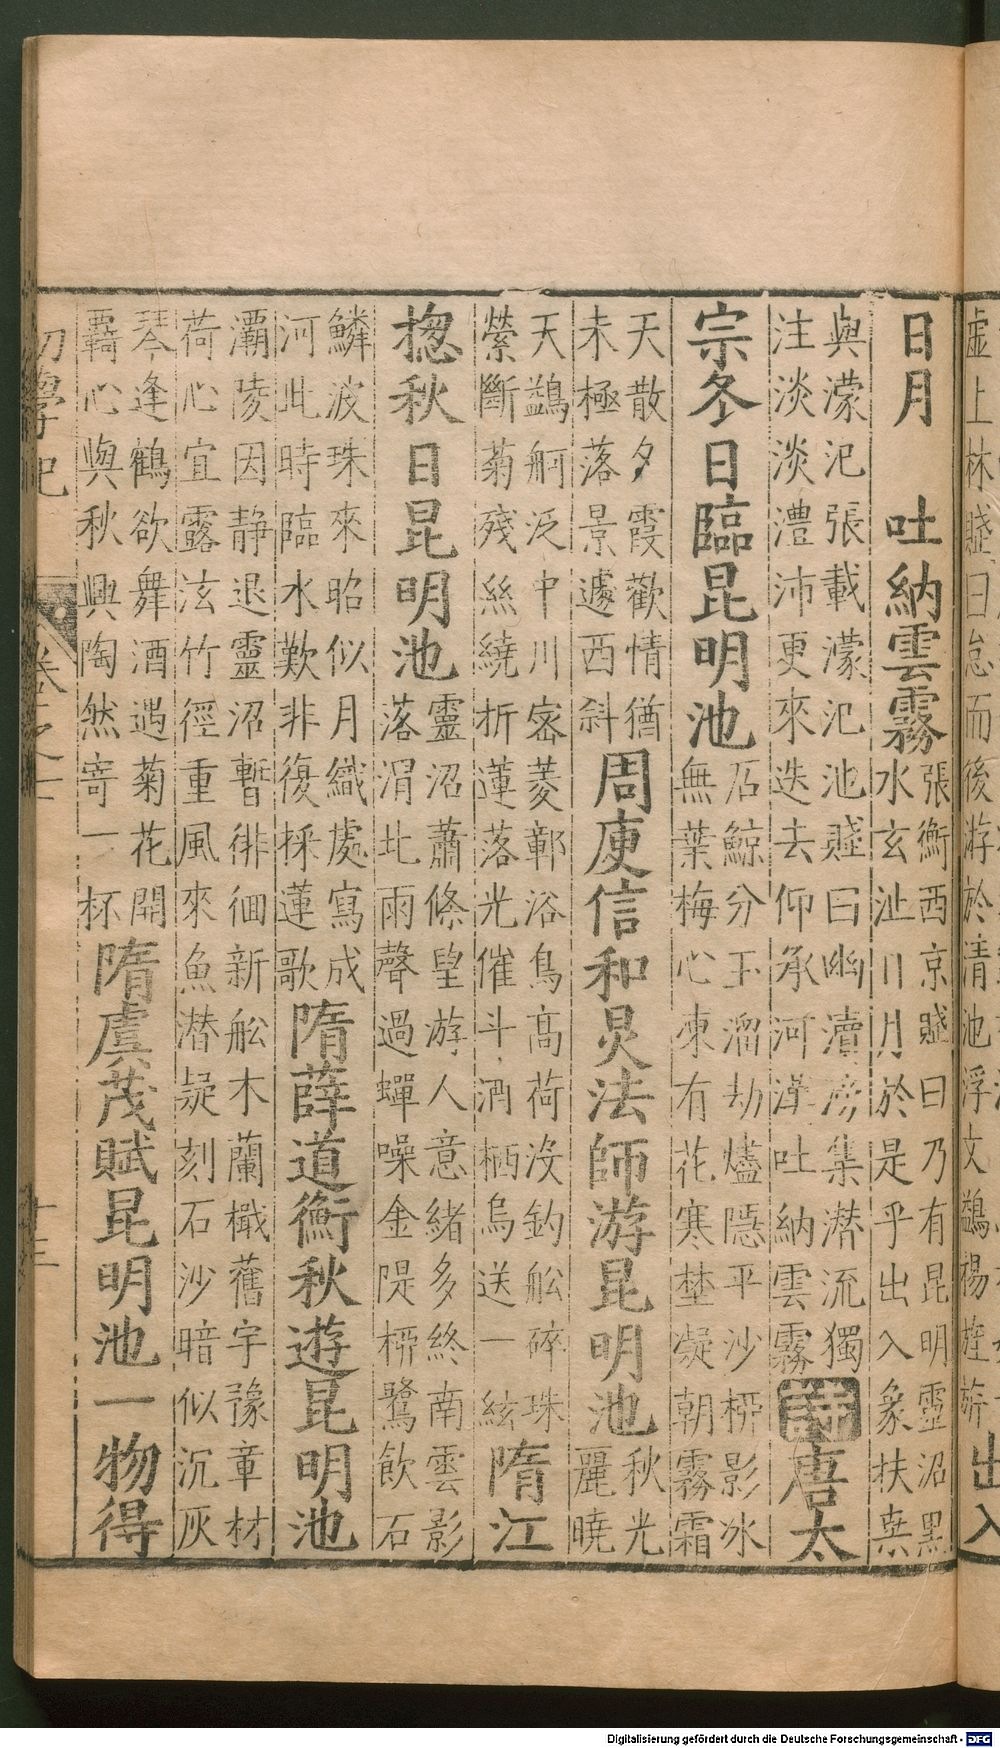 日月　吐納雲霧張衡西京賦曰乃有昆明靈沼黑
水玄沚日月於是乎出入象扶桑
與濛汜張載濛汜池賦曰幽瀆傍集潜流獨
注淡淡澧沛更來迭去仰承河漢吐納雲霧詩唐太
宗冬日臨昆明池石鯨分玉溜劫燼隱平沙桺影氷
無葉梅心凍有花寒埜凝朝霧霜
天散夕霞歡情猶
未極落景遽西斜周庾信和炅法師游昆明池秋光
麗曉
天鷁舸泛中川密菱鄣浴鳥高荷没釣舩碎珠
縈斷菊殘絲繞折蓮落光催斗酒栖烏送一絃隋江
揔秋日昆明池靈沼蕭條望游人意緒多終南雲影
落渭北雨聲過蟬噪金隄桺鷺飲石
鱗波珠來昭似月織處寫成
河此時臨水歎非復採蓮歌隋薛道衡秋遊昆明池
灞陵因静退靈沼暫徘徊新舩木蘭檝舊宇豫章材
荷心宜露泫竹徑重風來魚潜疑刻石沙暗似沉灰
琴逢鶴欲舞酒遇菊花開
覉心與秋興陶然寄一杯隋虞茂賦昆明池一物得
初學記
十三
虚上林賦曰怠而後游於清池浮文鷁楊旌
出入
Digitalisierung gefördert durch die Deutsche Forschungsgemeinschaft - DFG